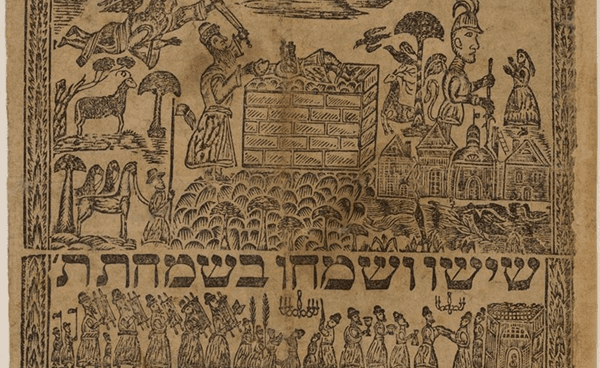 שישו ושמחו בשמחת ת׳